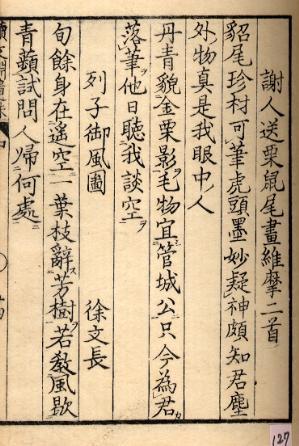 謝人送栗鼠尾畫維摩二首
貂尾珍材可筆虎頭墨妙疑神頗知君塵
外物真是我眼中人
丹青貌金粟影毛物宜管城公只今為君
落筆他日聽我談空
列子御風圖 徐文長
旬餘身在遙空一葉枝辭芳樹若教風歇
青蘋試問人歸何處
127